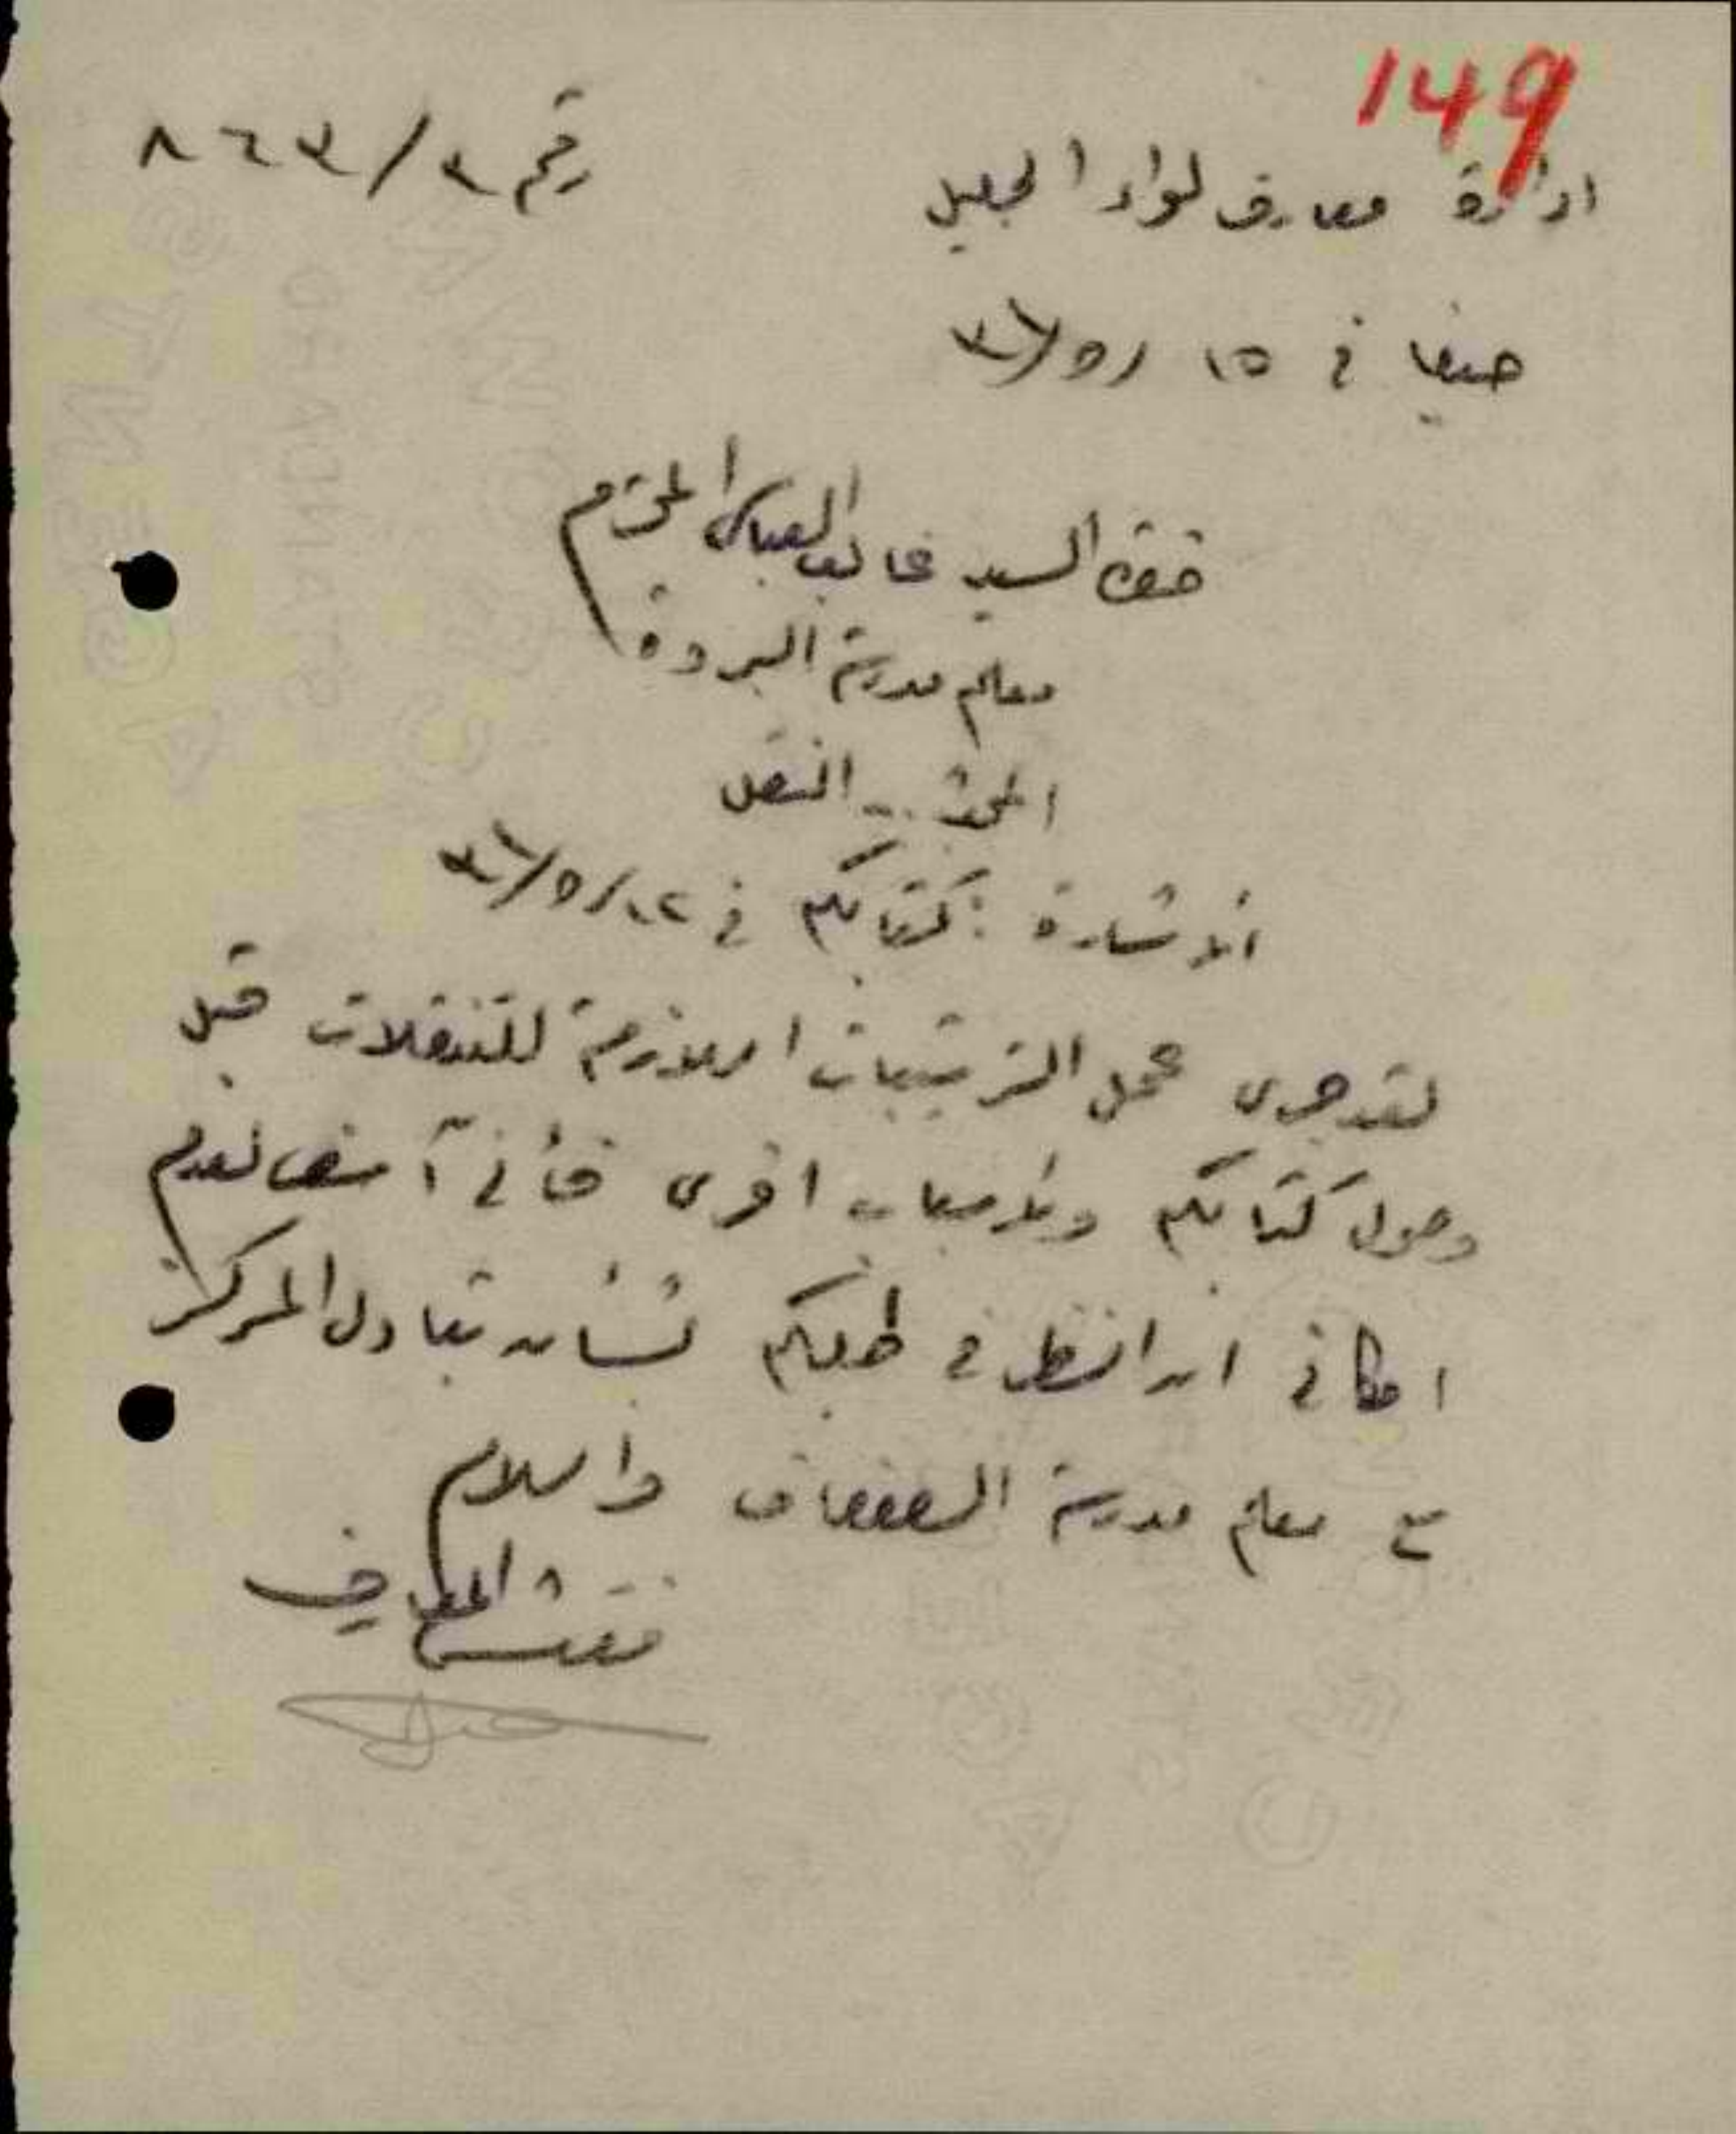 149
ادارة معارف لواء الجليل
رقم ٨٦٣/٣
حيفا في ١٥ /٥/ ٣٦
حضرة السيد غالب العباسي المحترم
معلم مدرسة البروة
المبحث :- النقل
الاشارة : كتابكم في ١٢/٥/٣٦
لقد جرى عمل الترتيبات اللازمة للتنقلات قبل
وصول كتابكم ولاسباب اخرى فأني آسف لعدم
امكاني ان انظر في طلبكم بشأن تبادل المركز
مع معلم مدرسة الصفصاف والسلام
مفتش المعارف